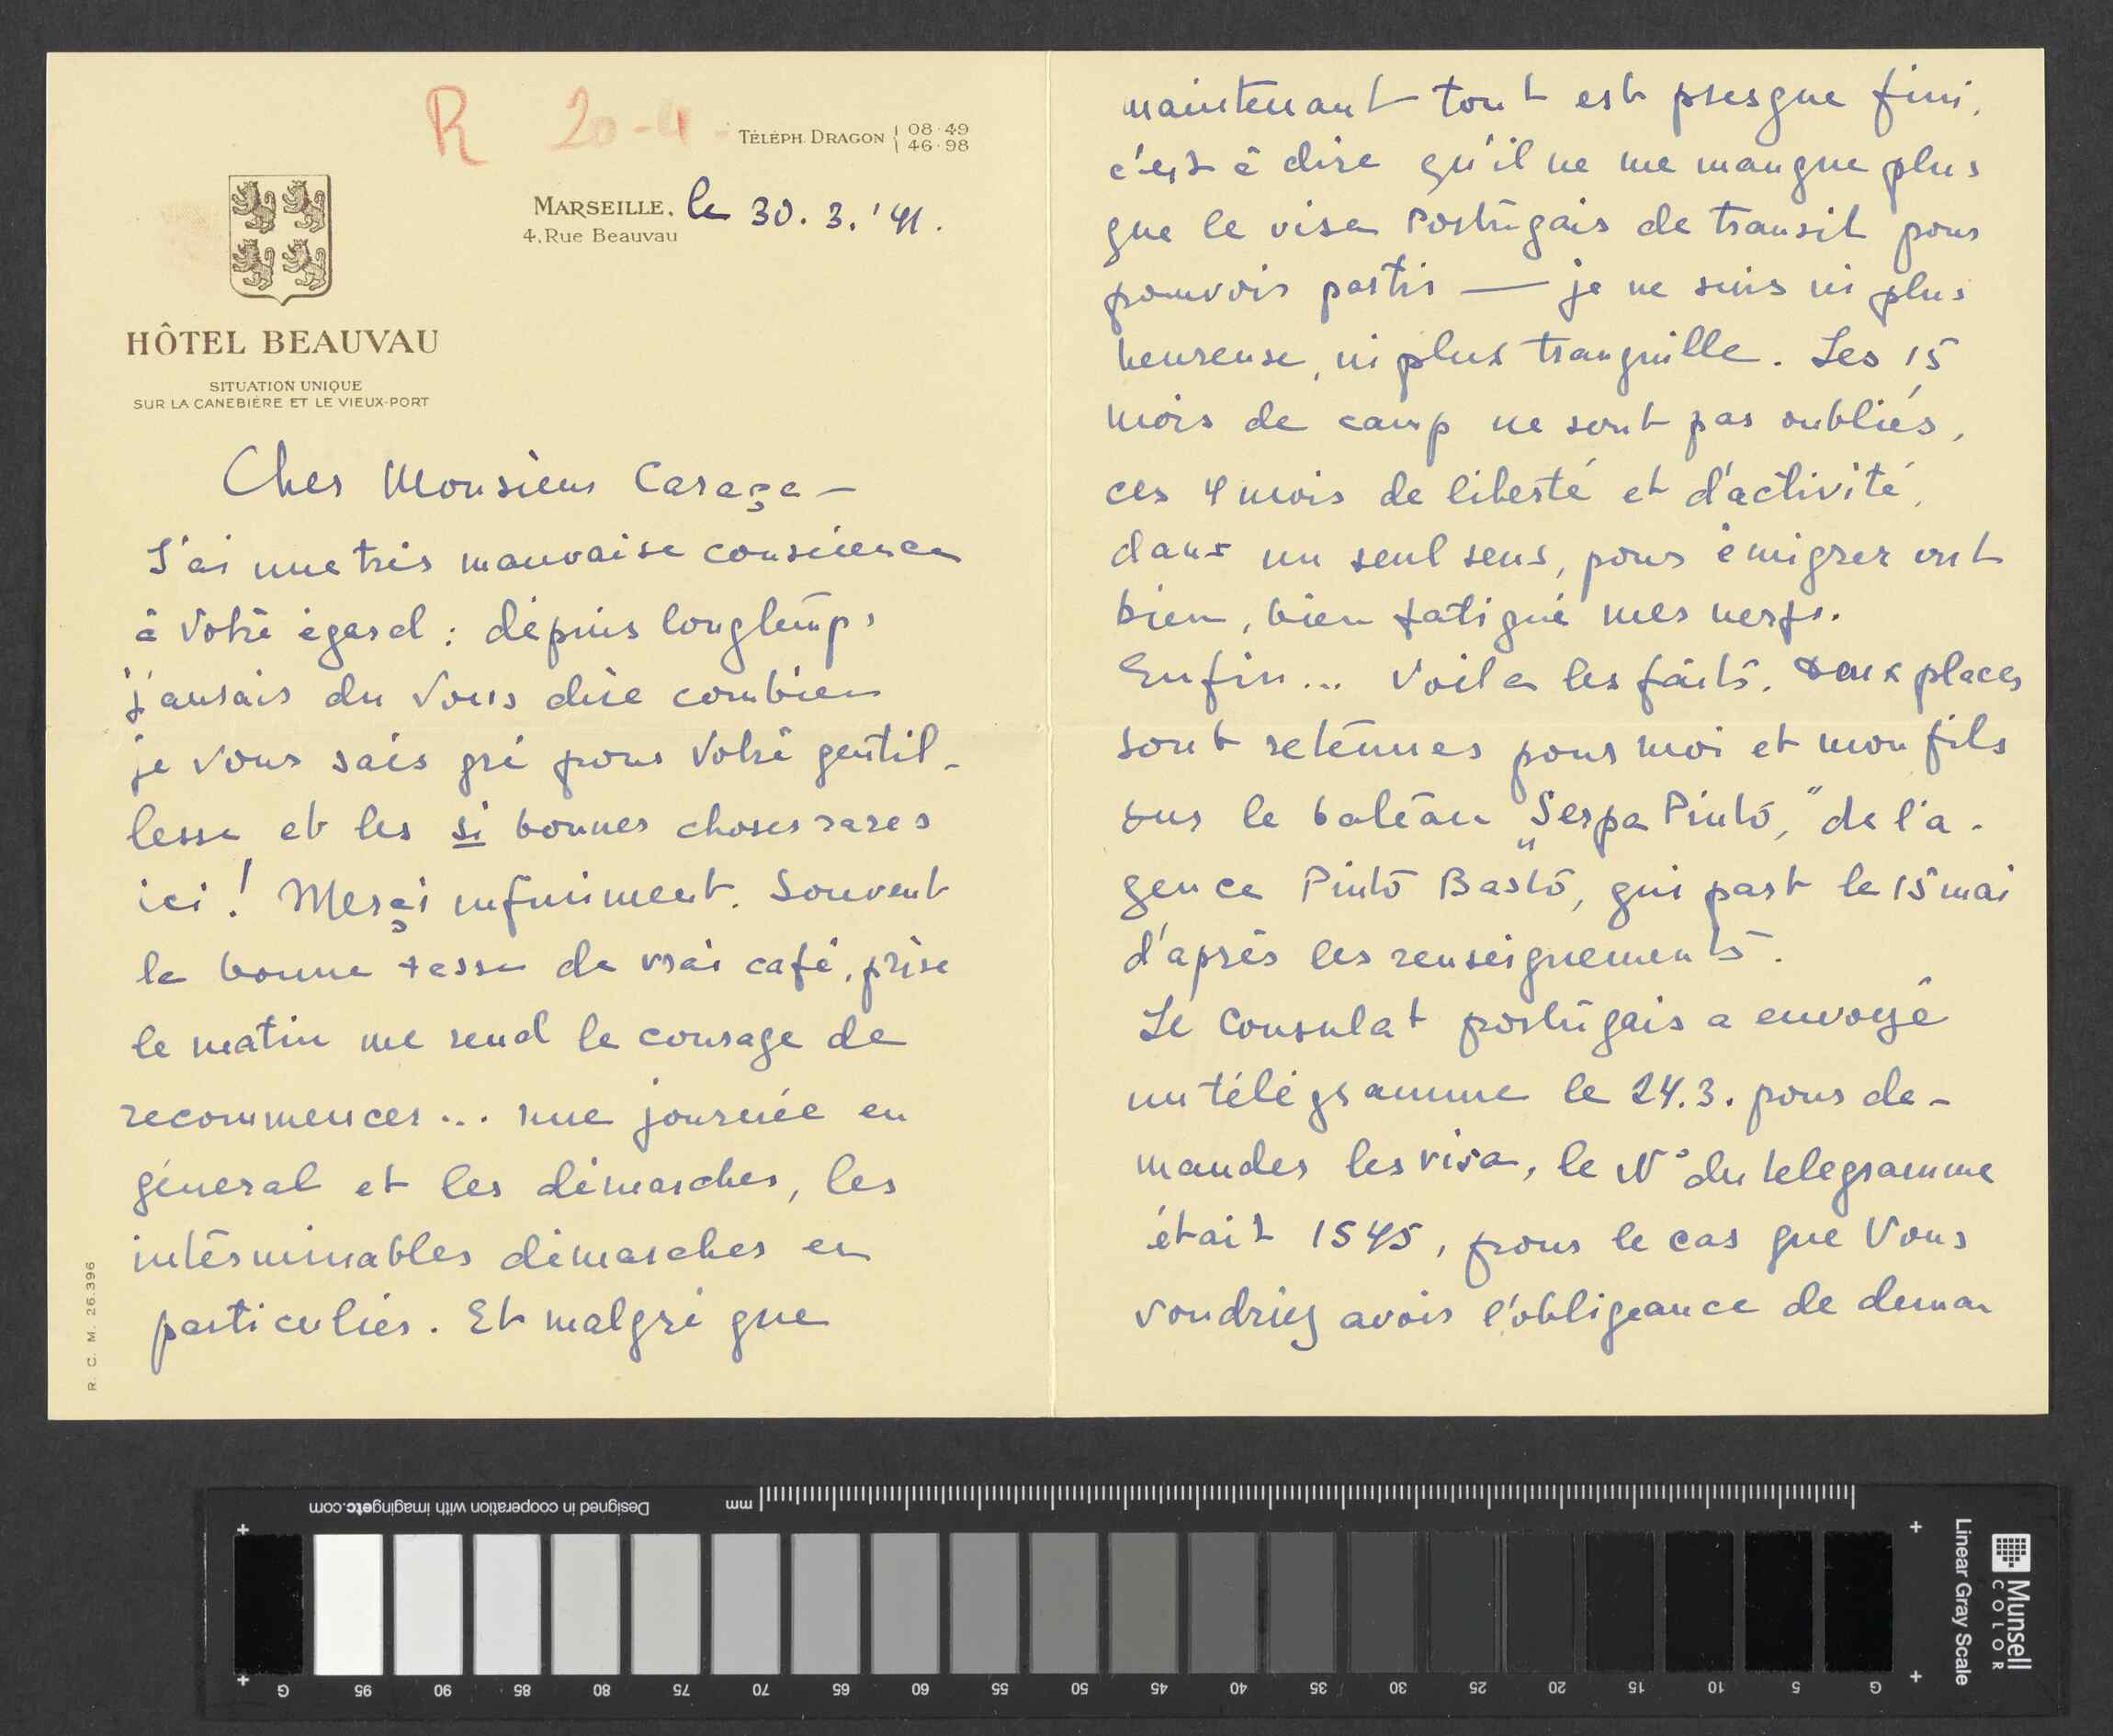 R 20-4-
TÉLÉPH. DRAGON 08·49
46·98
MARSEILLE, le 30. 3. '41.
4, Rue Beauvau
HÔTEL BEAUVAU
SITUATION UNIQUE
SUR LA CANEBIÈRE ET LE VIEUX-PORT
Cher Monsieur Caraça —
J'ai une très mauvaise conscience
à Votre égard : dépuis longtemps
j'aurais du Vous dire combien
je Vous sais gré pour Votre gentil-
lesse et les si bonnes choses rares
ici ! Merçi infiniment. Souvent
la bonne tasse de vrai café, prise
le matin me rend le courage de
recommencer... une journée en
géneral et les démarches, les
intérminables démarches en
particulier. Et malgré que
R. C. M. 26.396
maintenant tout est presque fini,
c'est à dire qu'il ne me manque plus
que le visa Portugais de transit pour
pouvoir partir — je ne suis ni plus
heureuse, ni plus tranquille. Les 15
mois de camp ne sont pas oubliés,
ces 4 mois de liberté et d'activité,
dans un seul sens, pour émigrer ont
bien, bien fatigué mes nerfs.
Enfin... Voila les faits. deux places
sont retenues pour moi et mon fils
sur le bateau „Serpa Pinto," de l'a-
gence Pinto Basto, qui part le 15 mai
d'aprés les renseignements.
Le Consulat portugais a envoyé
un télégramme le 24.3. pour de-
mander les visa, le N° du telegramme
était 1545, pour le cas que Vous
voudriez avoir l'obligeance de deman
Designed in cooperation with imagingetc.com
mm
G 95 90 85 80 75 70 65 60 55 50 45 40 35 30 25 20 15 10 5 G
Linear Gray Scale
Munsell
COLOR